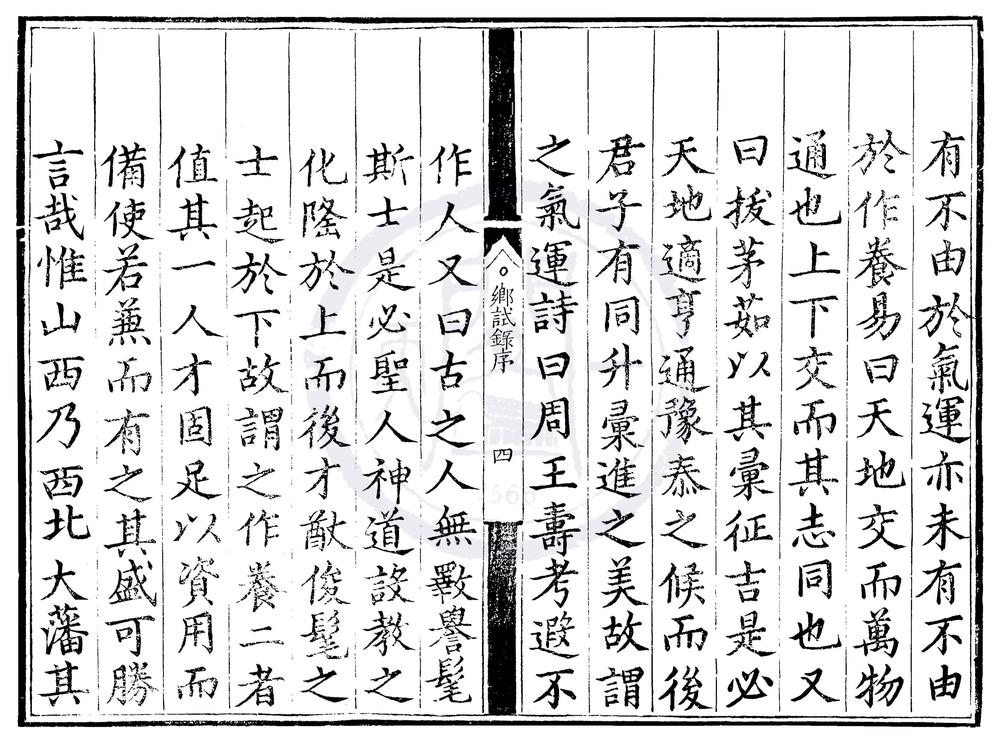 有不由於氣運亦未有不由
於作養易曰天地交而萬物
通也上下交而其志同也又
曰拔茅茹以其彙征吉是必
天地適亨通豫泰之候而後
君子有同升彙進之美故謂
之氣運詩曰周王壽考遐不
鄉試錄序
四
作人又曰古之人無斁譽髦
斯士是必聖人神道設教之
化隆於上而後才猷俊髦之
士起於下故謂之作養二者
值其一人才固足以資用而
備使若兼而有之其盛可勝
言哉惟山西乃西北大藩其